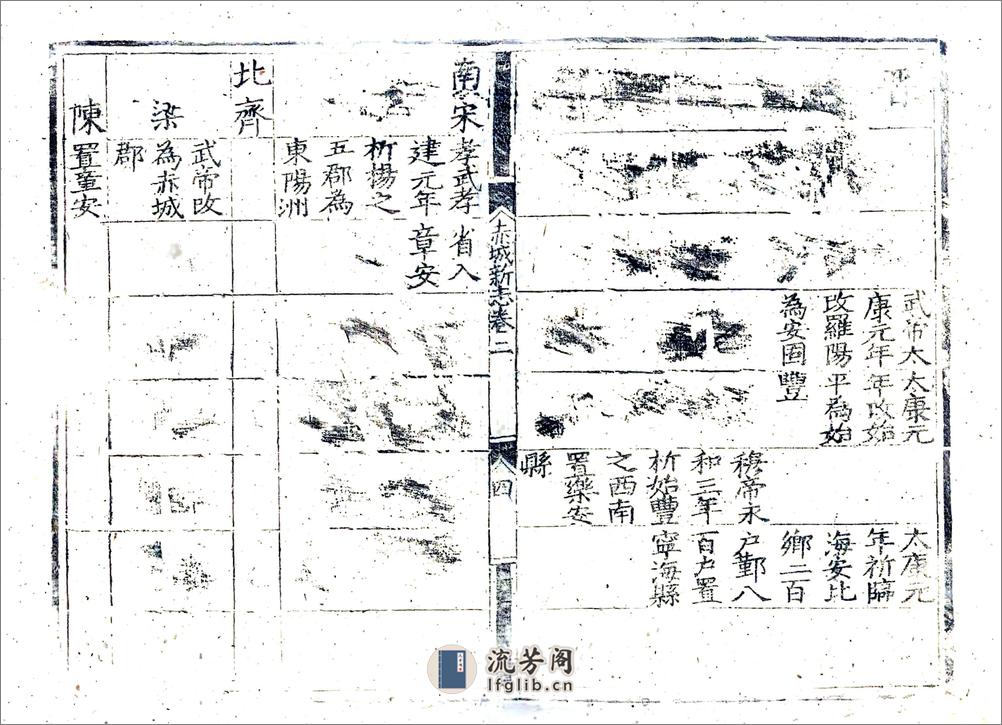 武帝太
康元年
改羅陽
為安固
太康元
年改始
平為始
豐
穆帝永
和三年
析始豐
之西南
置樂安
縣
太康元
年析臨
海安北
鄉二百
户鄞八
百户置
寧海縣
赤城新志卷二
四
南宋
孝武孝
建元年
析揚之
五郡為
東陽洲
省入
章安
北齊
梁
武帝改
為赤城
郡
陳
置章安
流芳阁
lfglib.cn